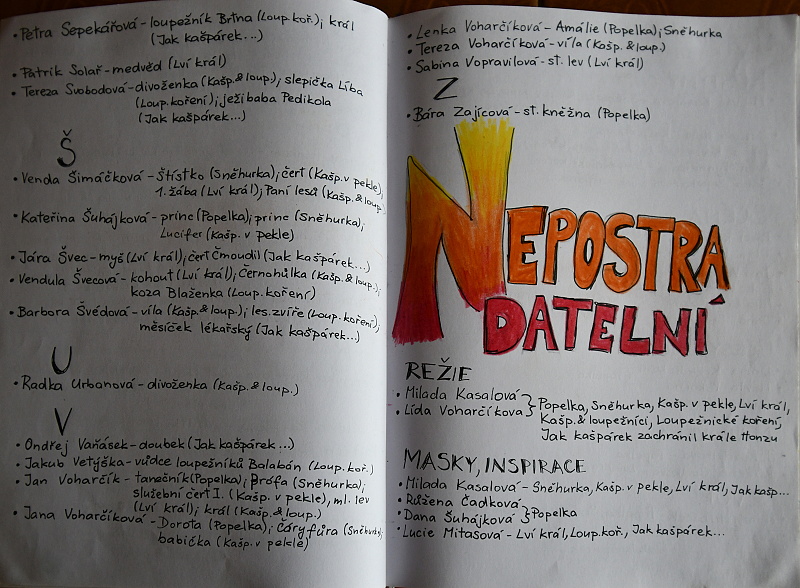 • Petra Sepekářová - loupežník Brťna (Loup. koř.); král
(Jak kašpárek...)
• Patrik Solař - medvěd (Lví král)
• Tereza Svobodová - divoženka (Kašp. & loup.); slepička Líba
(Loup. koření); ježibaba Pedikola
(Jak kašpárek...)
Š
• Venda Šimáčková - Štístko (Sněhurka); čert (Kašp. v pekle);
1. žába (Lví král); Paní lesů (Kašp. & loup.)
• Kateřina Šuhájková - princ (Popelka); princ (Sněhurka);
Lucifer (Kašp. v pekle)
• Jára Švec - myš (Lví král); čert Čmoudil (Jak kašpárek...)
• Vendula Švecová - kohout (Lví král); Černohůlka (Kašp. & loup.);
koza Blaženka (Loup. koření)
• Barbora Švédová - víla (Kašp. & loup.); les. zvíře (Loup. koření);
měsíček lékařský (Jak kašpárek...)
U
• Radka Urbanová - divoženka (Kašp. & loup.)
V
• Ondřej Vaňásek - doubek (Jak kašpárek...)
• Jakub Vetýška - vůdce loupežníků Balabán (Loup. koř.)
• Jan Voharčík - tanečník (Popelka); Prófa (Sněhurka);
služební čert I. (Kašp. v pekle), ml. lev
(Lví král); král (Kašp. & loup.)
• Jana Voharčíková - Dorota (Popelka); Čáryfůra (Sněhurka);
babička (Kašp. v pekle)
• Lenka Voharčíková - Amálie (Popelka); Sněhurka
• Tereza Voharčíková - víla (Kašp. & loup.)
• Sabina Vopravilová - st. lev (Lví král)
Z
• Bára Zajícová - st. kněžna (Popelka)
NEPOSTRA
DATELNÍ
REŽIE
• Milada Kasalová
• Lída Voharčíková } Popelka, Sněhurka, Kašp. v pekle, Lví král,
Kašp. & loupežníci, Loupežnické koření,
Jak kašpárek zachránil krále Honzu
MASKY, INSPIRACE
• Milada Kasalová - Sněhurka, Kašp. v pekle, Lví král, Jak kašp...
• Růžena Čadková
• Dana Šuhájková } Popelka
• Lucie Mitasová - Lví král, Loup. koř., Jak kašpárek...